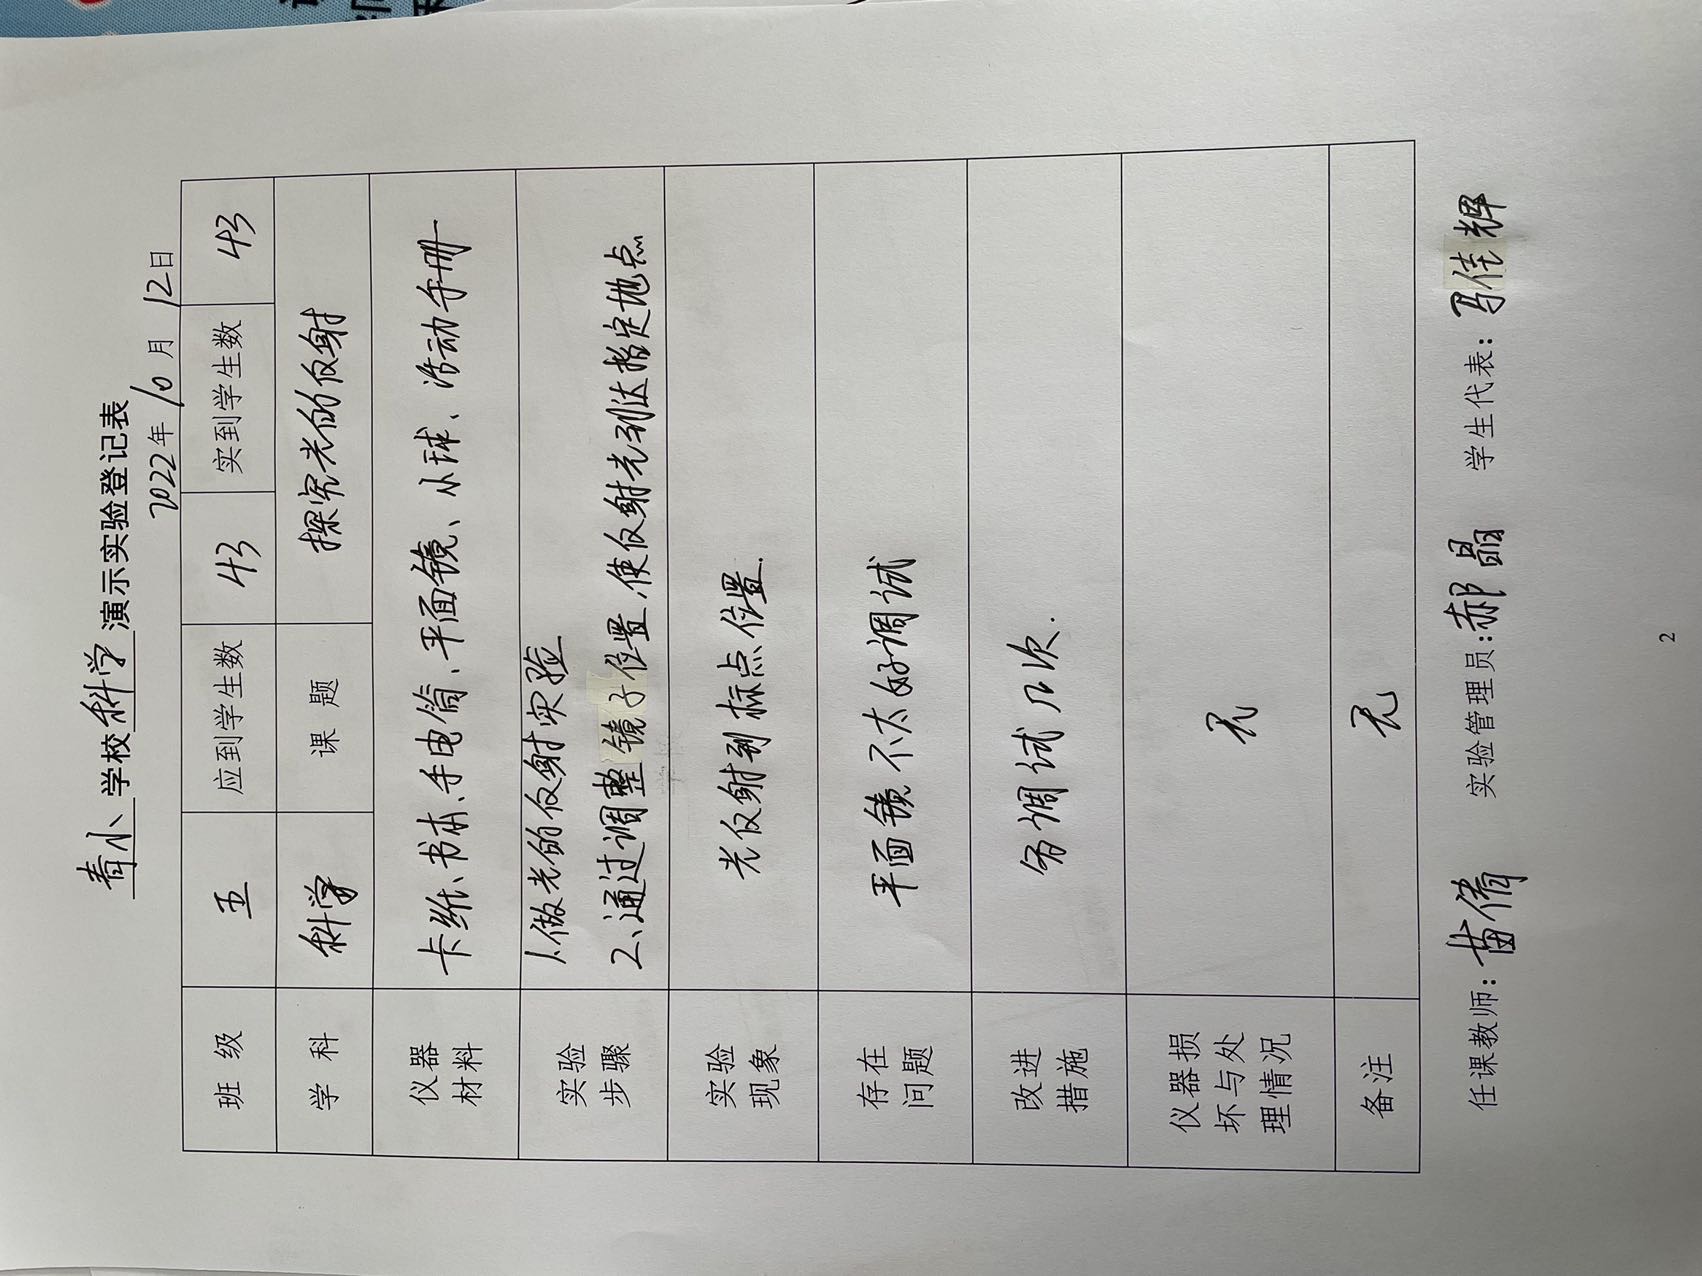 青小学校科学演示实验登记表
2022年10月12日
班级 五 应到学生数 43 实到学生数 43
学科 科学 课题 探究光的反射
仪器材料 卡纸、书本、手电筒、平面镜、小球、活动手册
实验步骤 1.做光的反射实验
2、通过调整镜子位置,使反射光到达指定地点
实验现象 光反射到标点位置.
存在问题 平面镜不太好调试
改进措施 多调试几次.
仪器损坏与处理情况 无
备注 无
任课教师:苗倩 实验管理员:郝晶 学生代表:冯佳辉
2